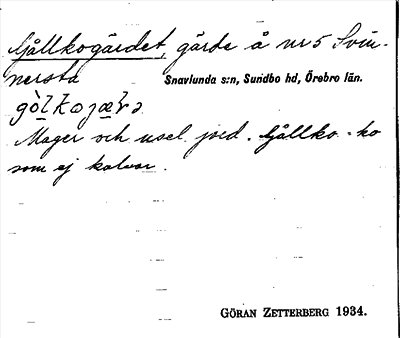 Gållkogärdet, gärde å nr 5 Svin-
nersta Snavlunda s:n, Sundbo hd, Örebro län.
gòlkojærə
Mager och usel jord. Gållko = ko
som ej kalvar.
GÖRAN ZETTERBERG 1934.